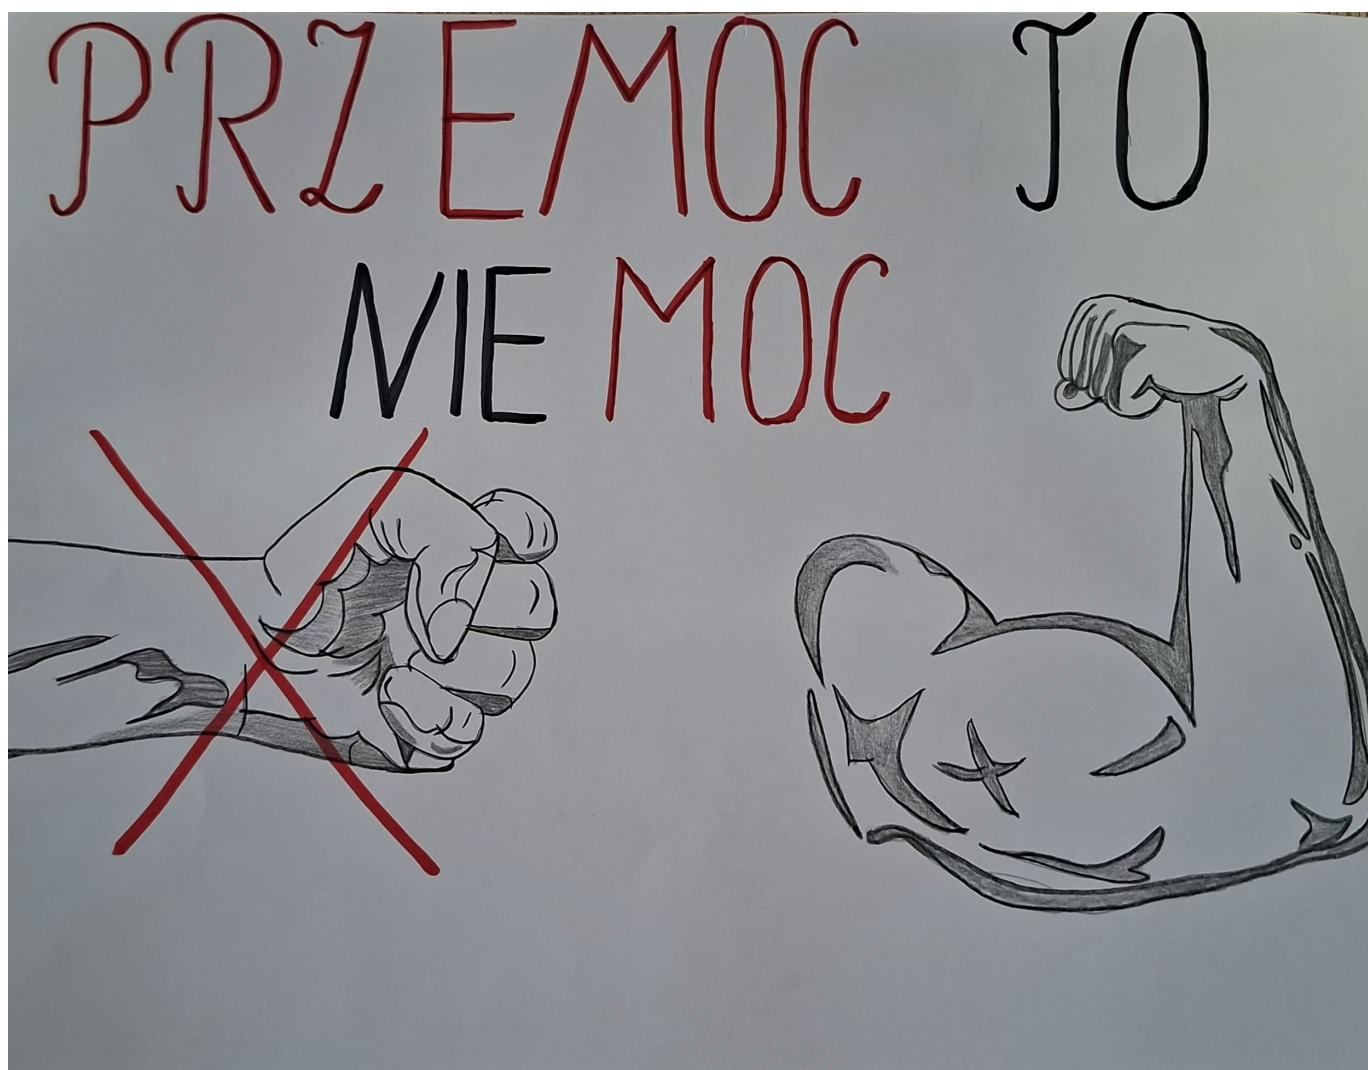 PRZEMOC TO
NIE MOC